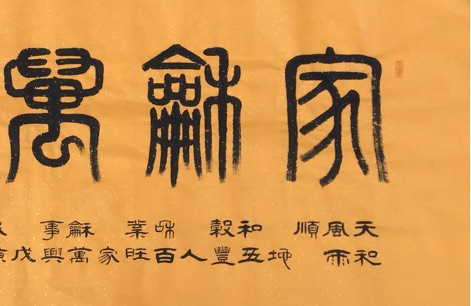 家龢萬
天和
風雨
順
地
和五
穀豐
人
咊百
業旺
家
龢萬
事興
戊